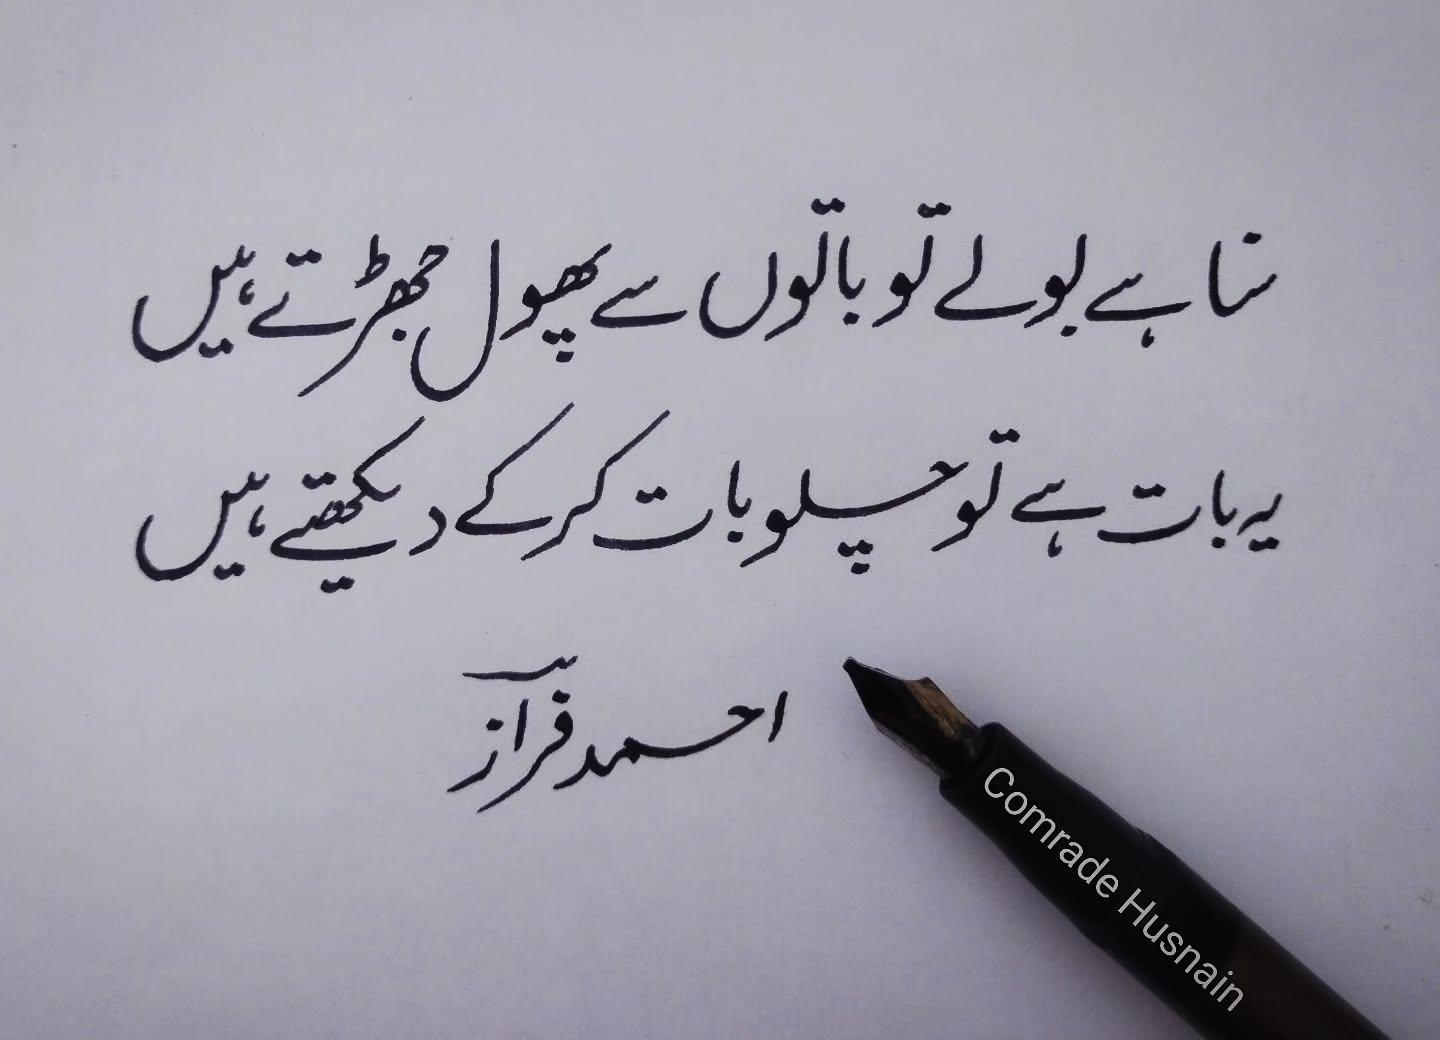 سنا ہے بولے تو باتوں سے پھول جھڑتے ہیں
یہ بات ہے تو چلو بات کر کے دیکھتے ہیں
احمد فرازؔ
Comrade Husnain